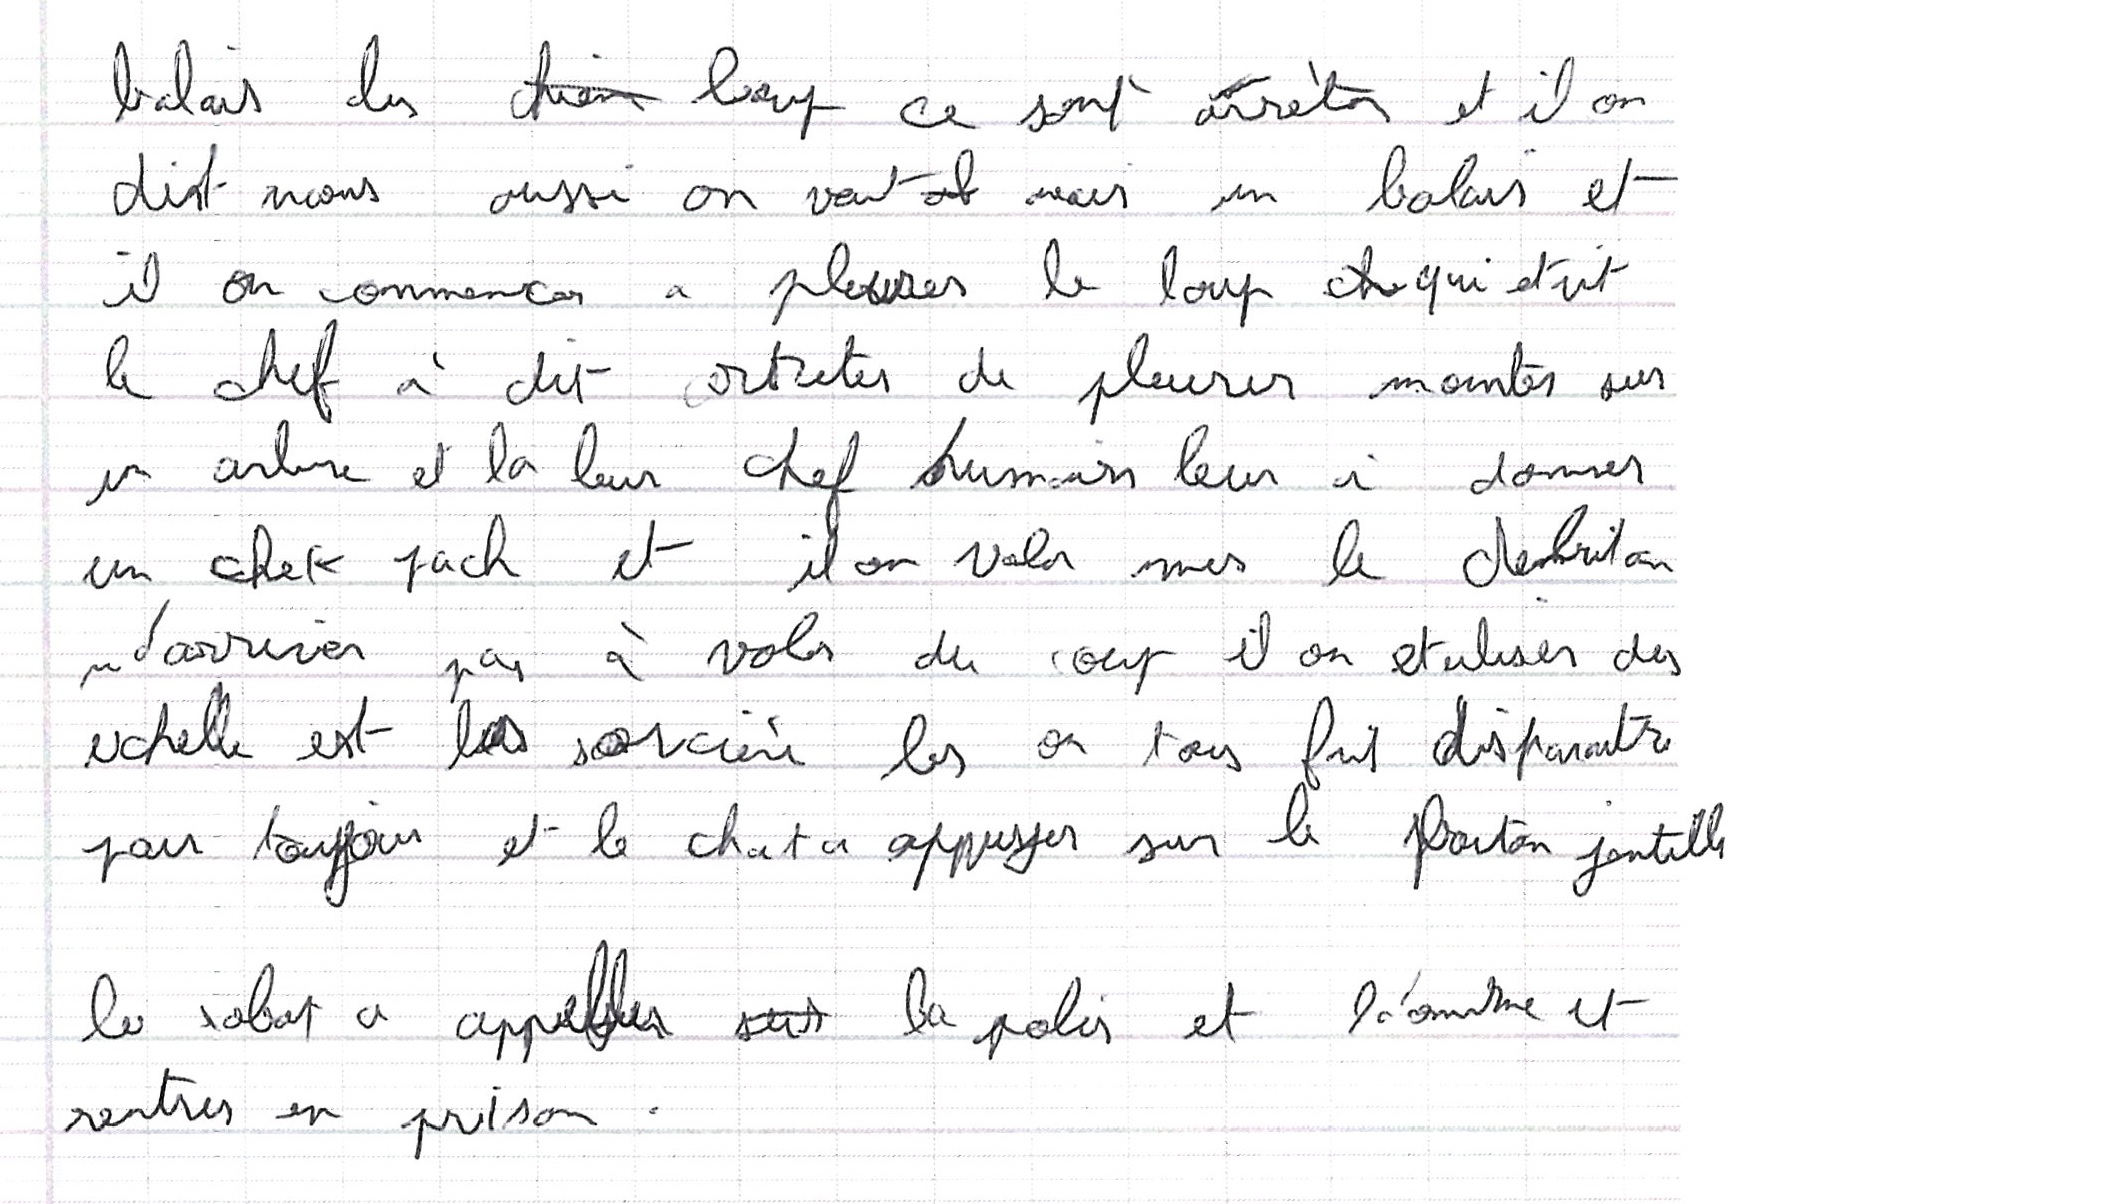 balais des chien loup ce sont arrèter et il on
dit nous aussi on veut un balais et
il on commencer a pleurer le loup qui etait
le chef à dit de pleurer monter sur
un arbre et la leur chef humain leur à donner
un chek pach et il on voler mes le
n'arriver pas à voler du coup il on utuliser des
echelle est las sorcière les on tous fait disparaitre
pour toujour et le chat a appuyer sur le boutan jentille
le robot a appeller la polis et l'omme et
rentrer en prison.